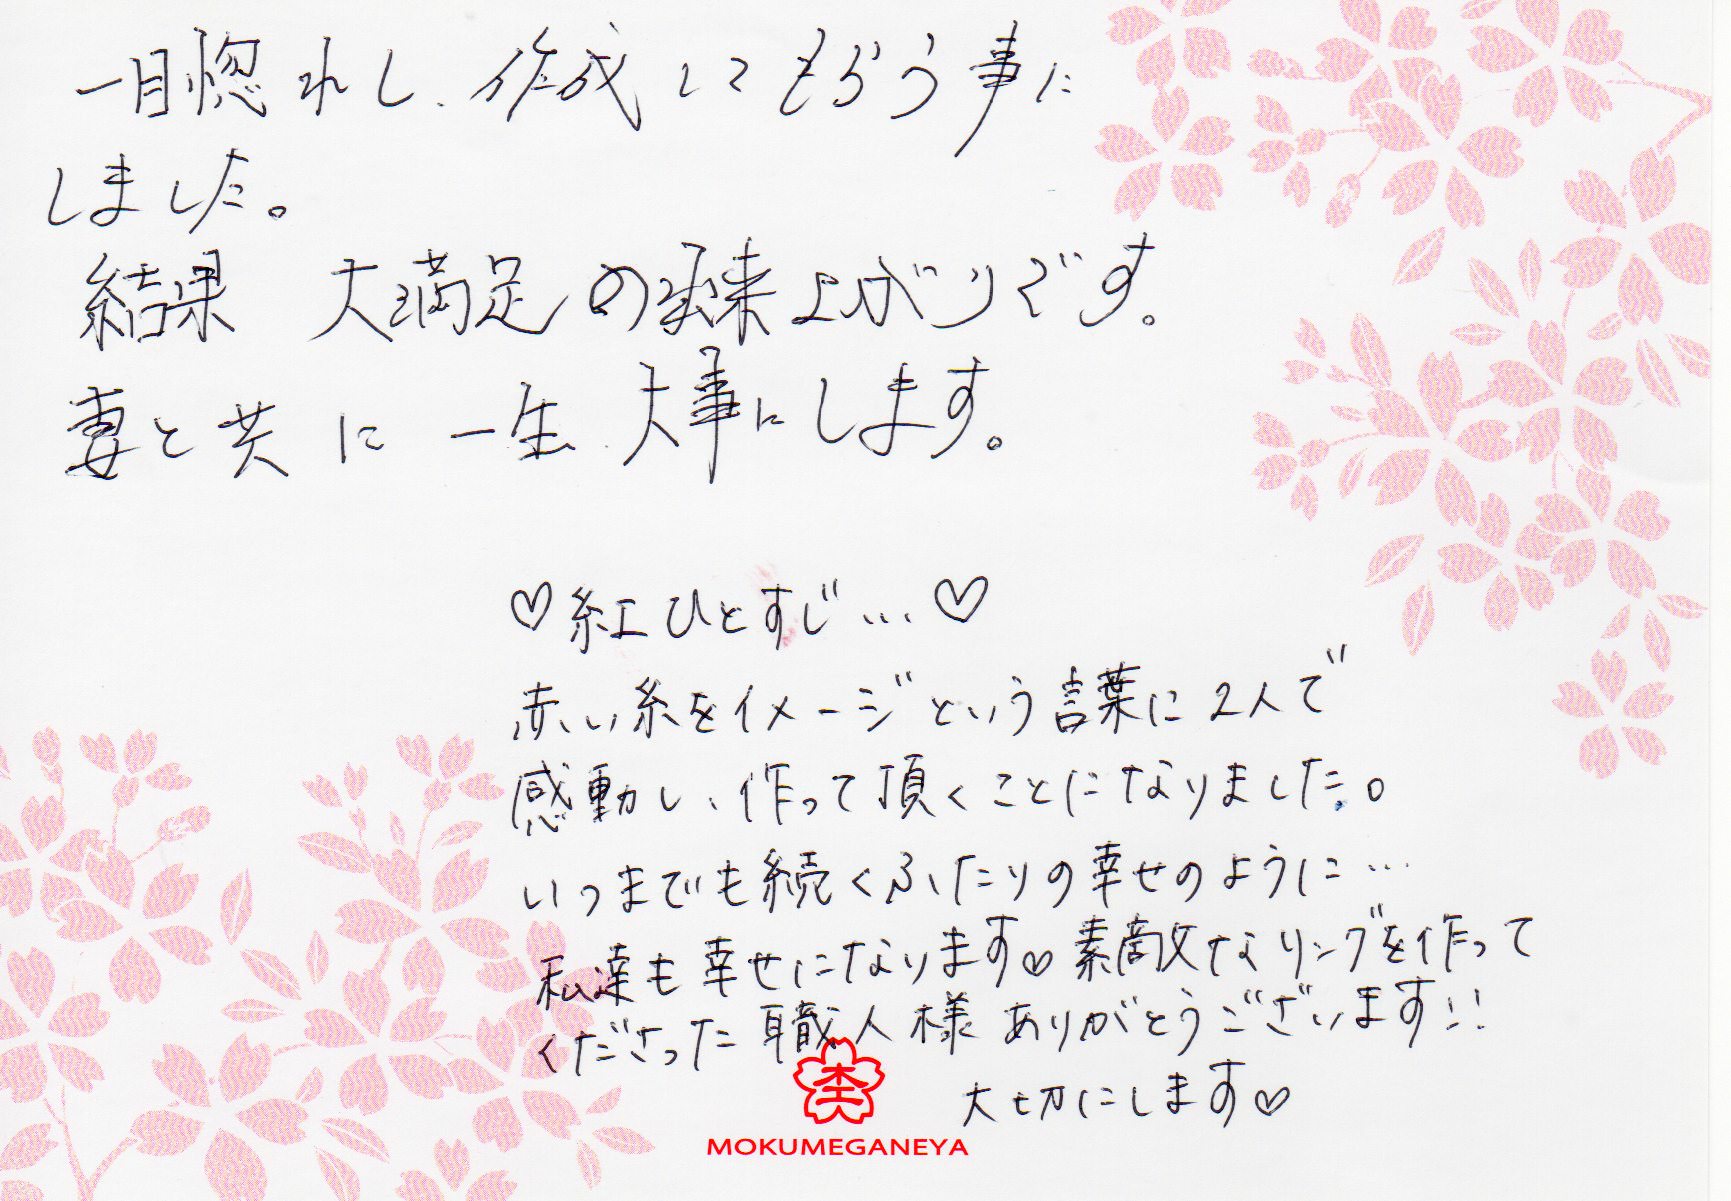 一目惚れし、作成してもらう事に
しました。
結果 大満足の出来上がりです。
妻と共に一生、大事にします。
♡紅ひとすじ…♡
赤い糸をイメージという言葉に2人で
感動し、作って頂くことになりました。
いつまでも続くふたりの幸せのように…
私達も幸せになります♡素敵なリングを作って
くださった職人様ありがとうございます!!
大切にします♡
MOKUMEGANEYA